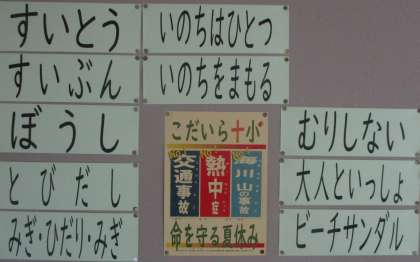 すいとう
すいぶん
ぼうし
とびだし
みぎ・ひだり・みぎ
いのちはひとつ
いのちをまもる
こだいら十小
NO!
交通事故
NO!
熱中症
NO!
海川山の事故
命を守る夏休み
むりしない
大人といっしょ
ビーチサンダル